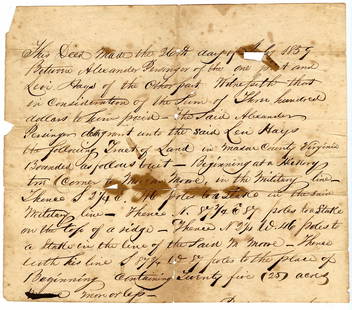 This Deed made the 26th day of 1859
Between Alexander Persinger of the one part and
Levi Hays of the other part Witnesseth that
in Consideration of the Sum of Three hundred
dollars to him paid - The said Alexander
Persinger doth grant unto the said Levi Hays
the following Tract of Land in Mason County Virginia
Bounded as follows to wit - Beginning at a Hickory
Corner to Moore, in the Military line
Thence S 2 3/4 E poles to a Stake in the said
Military line - Thence N. 87 3/4 E 87 poles to a Stake
on the top of a ridge - Thence N 2 3/4 W 46 poles to
a stake in the line of the said Moore - Thence
with his line S 87 3/4 W 87 poles to the place of
Beginning Containing Twenty five (25) acres
more or less -